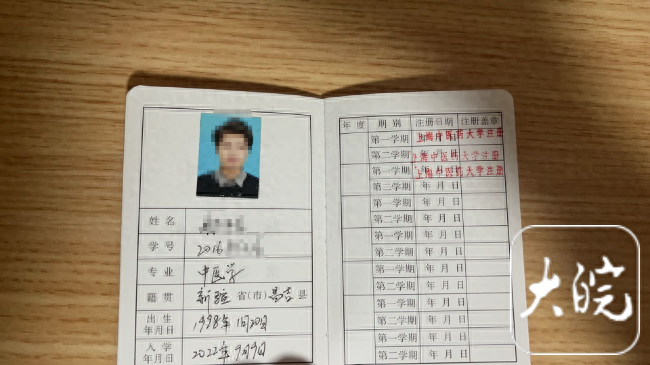 姓名
学号 2016
专业 中医学
籍贯 新疆 省(市) 昌吉 县
出生年月日 1998年1月20日
入学年月日 2022年9月9日
年度 期别 注册日期 注册盖章
第一学期 年月日 上海中医药大学注册
第二学期 年月日 上海中医药大学注册
第一学期 年月日 上海中医药大学注册
第二学期 年月日
第一学期 年月日
第二学期 年月日
第一学期 年月日
第二学期 年月日
第一学期 年月日
第二学期 年月日
第一学期 年月日
第二学期 年月日
第一学期 年月日
第二学期 年月日
大皖